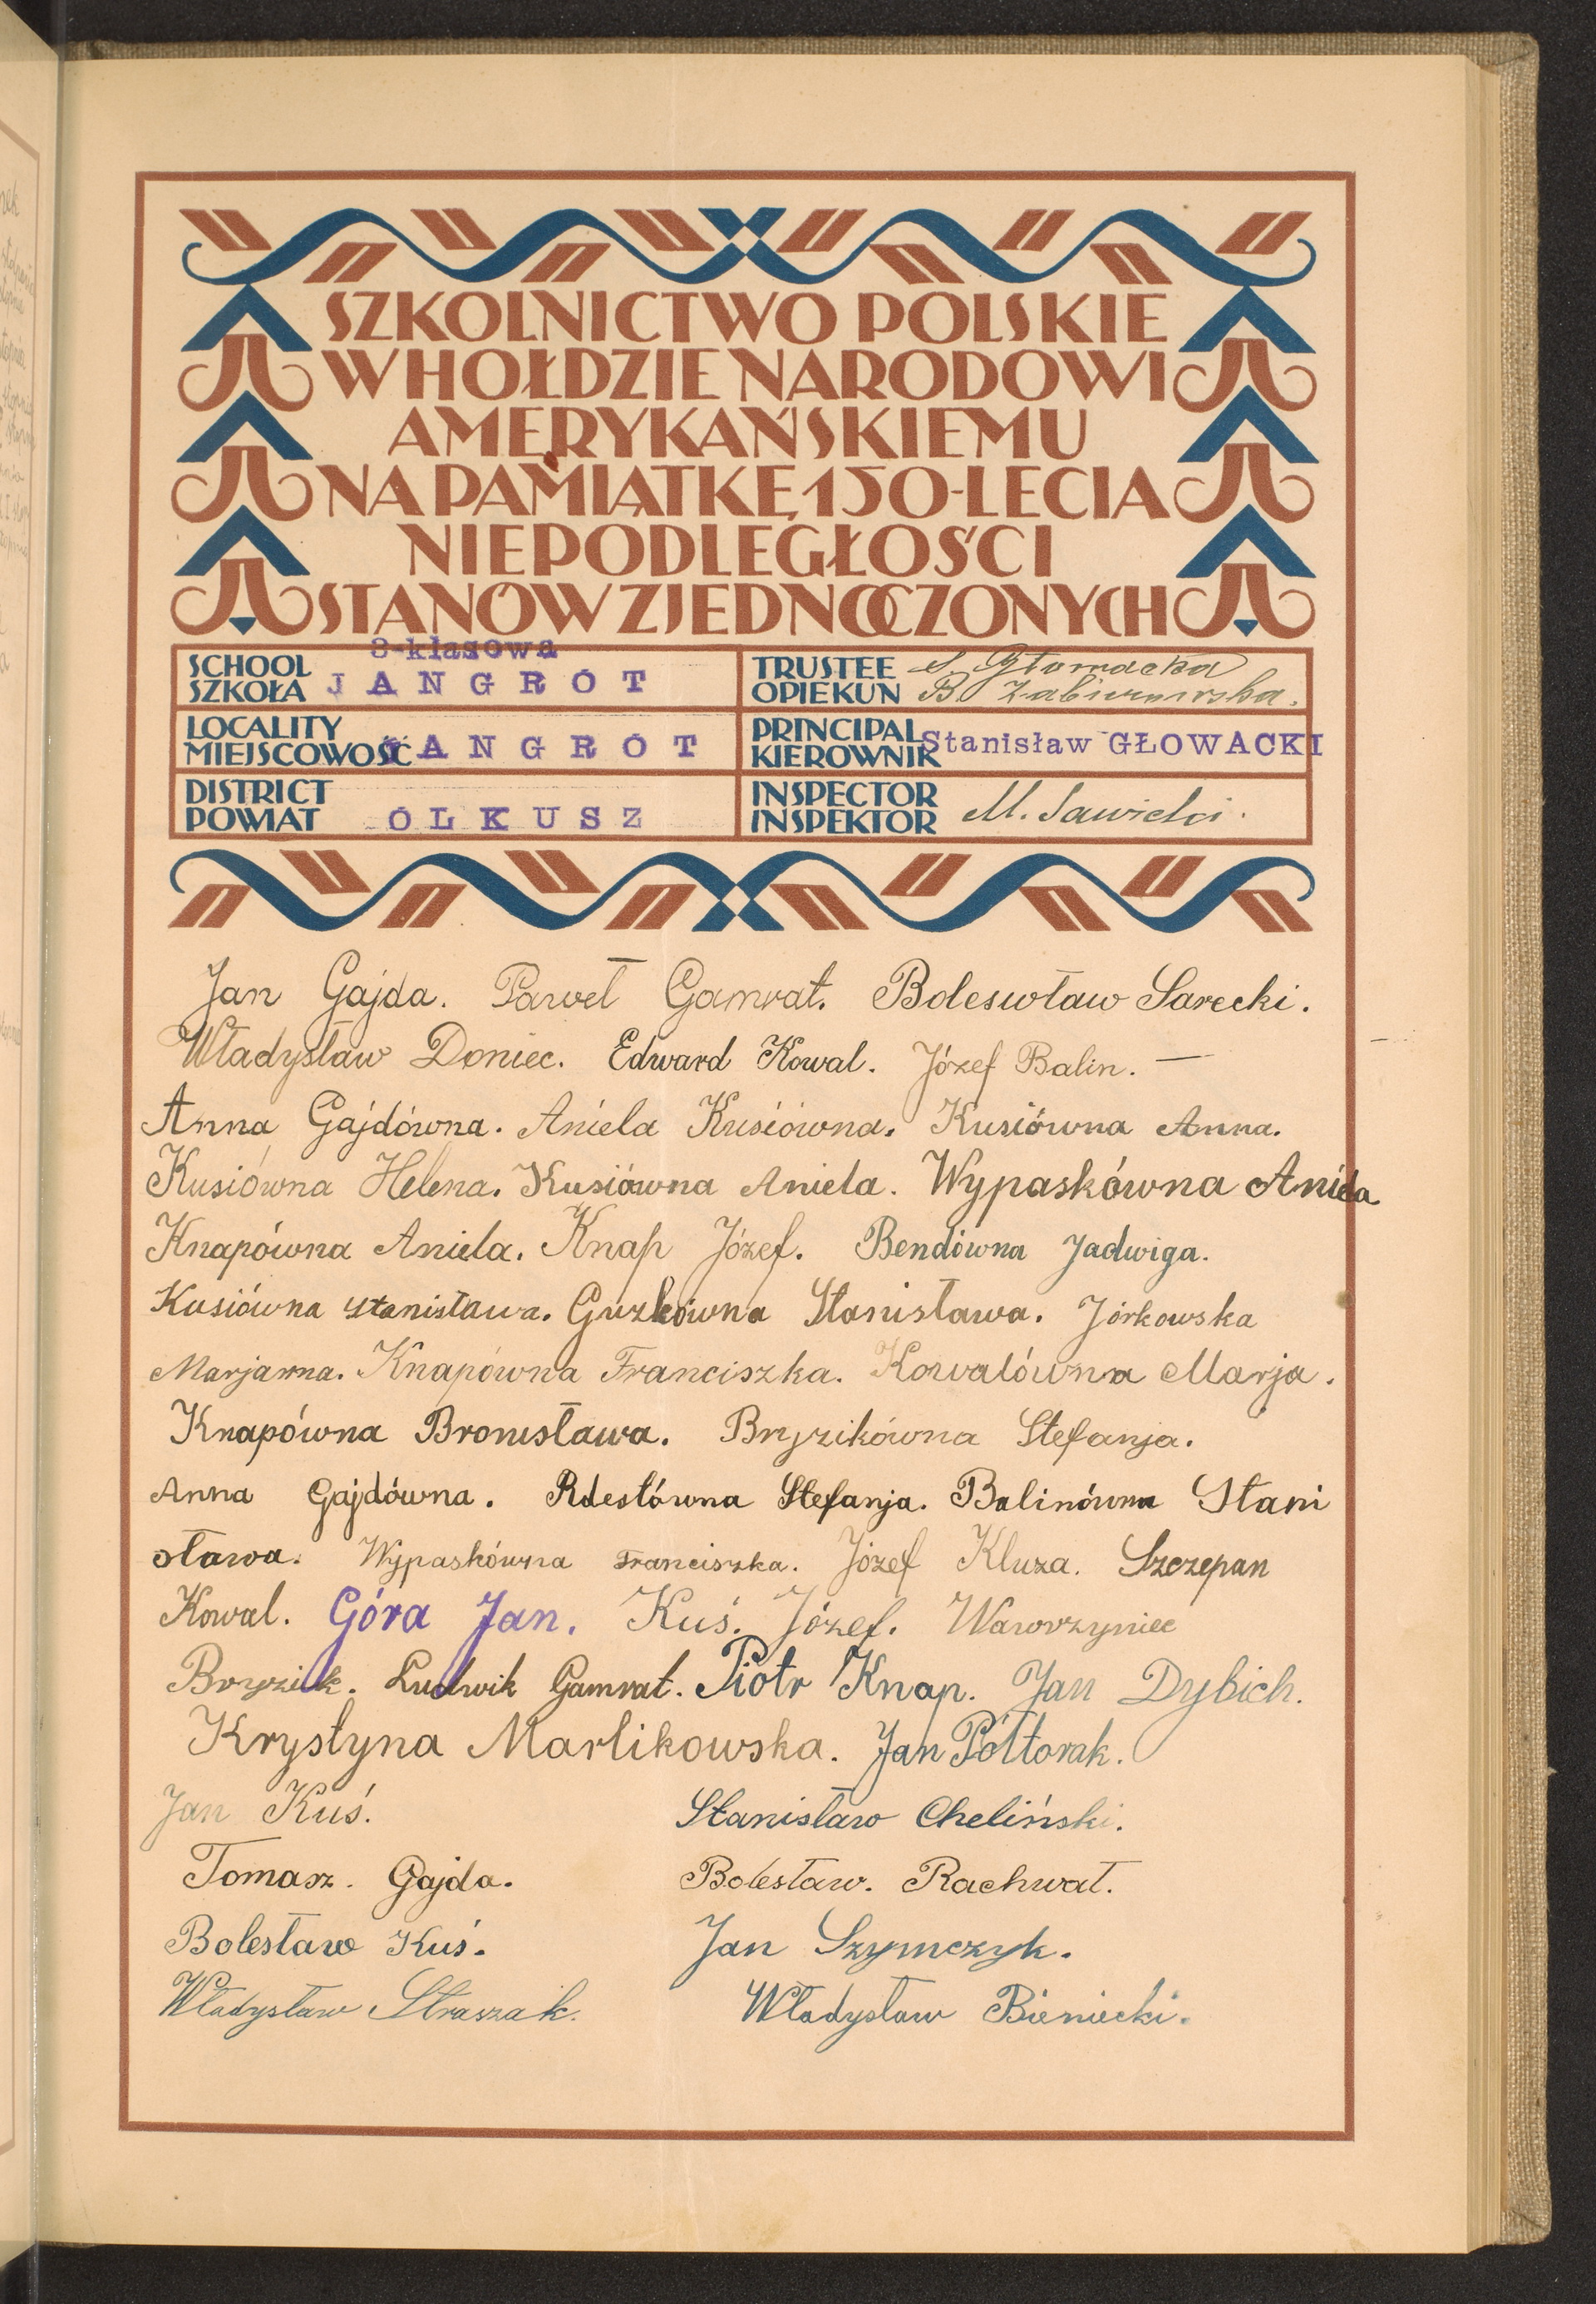 SZKOLNICTWO POLSKIE
W HOŁDZIE NARODOWI
AMERYKAŃSKIEMU
NA PAMIĄTKĘ 150-LECIA
NIEPODLEGŁOŚCI
STANÓW ZJEDNOCZONYCH
SCHOOL
SZKOŁA
3-klasowa
JANGROT
TRUSTEE
OPIEKUN
S. Głowacka
B.
LOCALITY
MIEJSCOWOŚĆ
JANGROT
PRINCIPAL
KIEROWNIK
Stanisław GŁOWACKI
DISTRICT
POWIAT
OLKUSZ
INSPECTOR
INSPEKTOR
M. Sawicki.
Jan Gajda. Paweł Gamrat. Boleswław Sarecki.
Władysław Doniec. Edward Kowal. Józef Balin. —
Anna Gajdówna. Aniela Kusiówna. Kusiówna Anna.
Kusiówna Helena. Kusiówna Aniela. Wypaskówna Aniela
Knapówna Aniela. Knap Józef. Bendówna Jadwiga.
Kusiówna Stanisława. Guzkówna Stanisława. Jórkowska
Marjanna. Knapówna Franciszka. Kowalówna Marja.
Knapówna Bronisława. Bryzikówna Stefanja.
Anna Gajdówna. Rdestówna Stefanja. Balinówna Stani
sława. Wypaskówna Franciszka. Józef Kluza. Szczepan
Kowal. Góra Jan. Kuś. Józef. Wawrzyniec
Bryzik. Ludwik Gamrat. Piotr Knap. Jan Dybich.
Krystyna Marlikowska. Jan Półtorak.
Jan Kuś. Stanisław Cheliński.
Tomasz. Gajda. Bolesław. Rachwał.
Bolesław Kuś. Jan Szymczyk.
Władysław Straszak. Władysław Bieniecki.